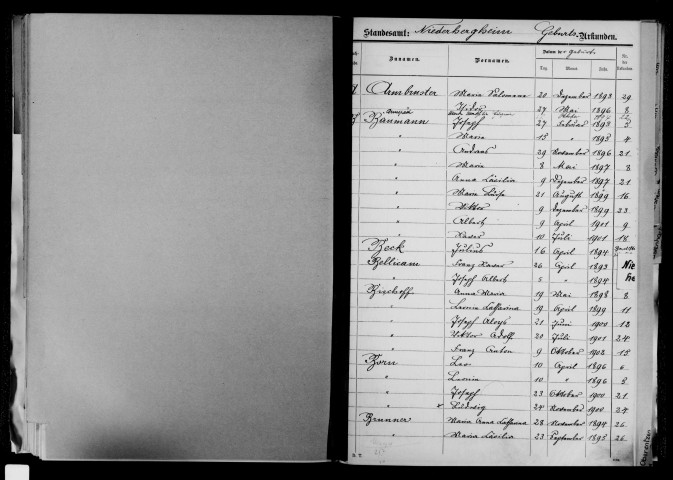 Standesamt: Niederbergheim Geburts-Urkunden.
Zunamen. Vornamen. Datum der Geburt. Nr. der Urkunden
Tag. Monat. Jahr.
Armbruster Maria Salomana 20 Dezember 1893 29
" Isidor 27 Mai 1896 8
Baumann Joseph 27 Februar 1893 5
" Maria 15 " 1895 4
" Andreas 29 November 1896 21
" Maria 8 Mai 1897 8
" Anna Cäcilia 9 Dezember 1897 21
" Maria 21 August 1899 16
" Viktor 9 Dezember 1899 23
" Albert 9 April 1901 9
" Xaver 10 Juli 1901 18
Beck Julius 16 April 1894
Beltram Franz Xaver 26 April 1893
" Joseph Albert 5 " 1894
Bischoff Anna Maria 19 Mai 1898 8
" Katharina 19 April 1899 11
" Joseph Aloys 21 Juni 1900 12
" Viktor Adolf 20 Juli 1901 24
" Franz Anton 9 Oktober 1902 15
Born Leo 10 April 1896 6
" 10 " 1896 5
" Joseph 23 Oktober 1900 21
" Ludwig 24 November 1900 24
Brunner Maria Anna Katharina 28 November 1894 26
" Maria Cäcilia 23 September 1895 26